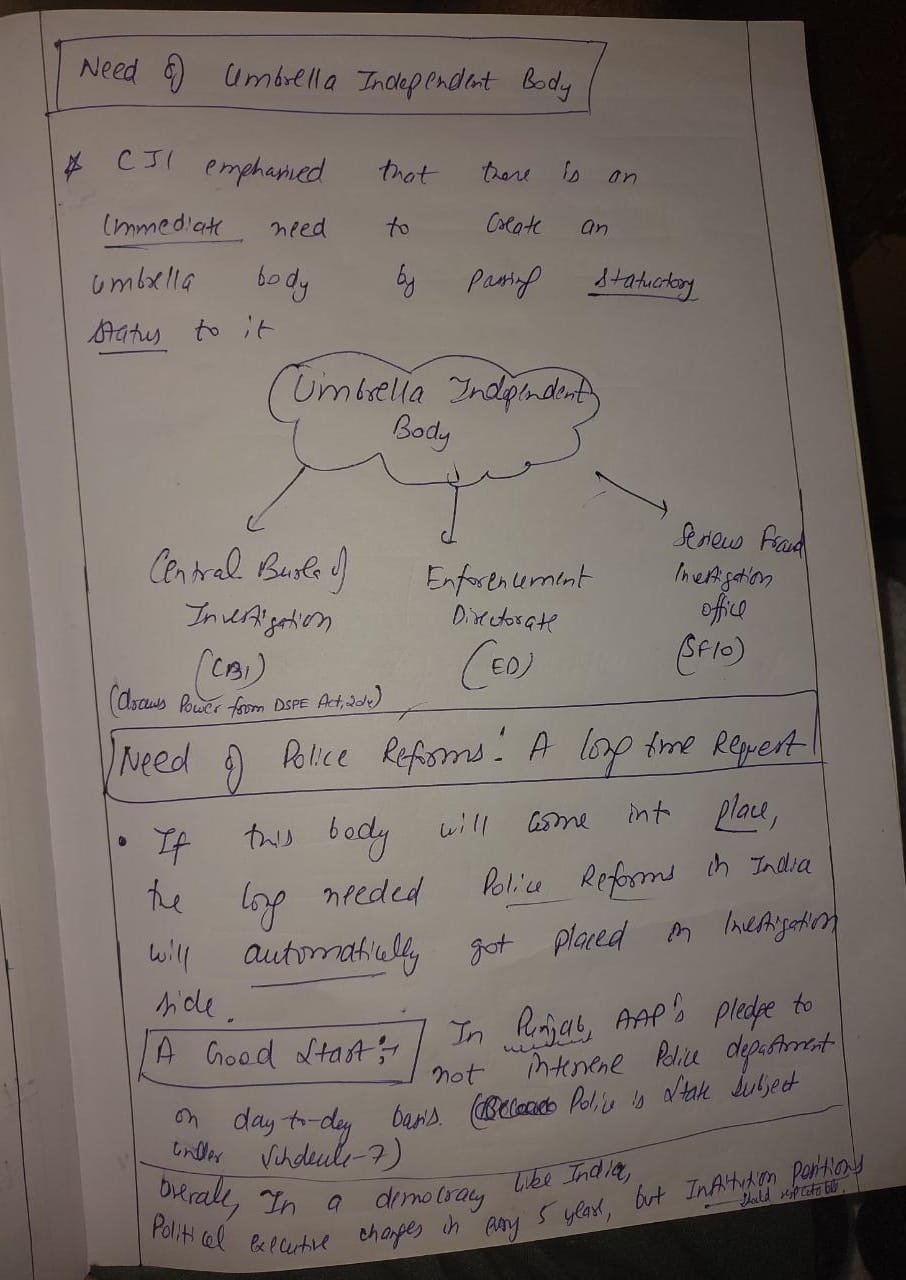 Need of Umbrella Independent Body
* CJI emphasised that there is an
Immediate need to create an
umbrella body by passing statuatory
status to it
Umbrella Independent
Body
Central Bureau of
Investigation
(CBI)
(draws Power from DSPE Act,
Enforencement
Directorate
(ED)
Serious Fraud
Investigation
office
(SFIO)
Need of Police Reforms: A long time Request
• If this body will come int place,
the long needed Police Reforms in India
will automatically got placed on Investigation
side.
A Good Start :→ In Punjab, AAP's pledge to
not intervene Police department
on day-to-day basis. ( Police is State subject
under Schdeule-7)
Overall, In a democracy like India,
Political executive changes in every 5 years, but Institution Positions
should